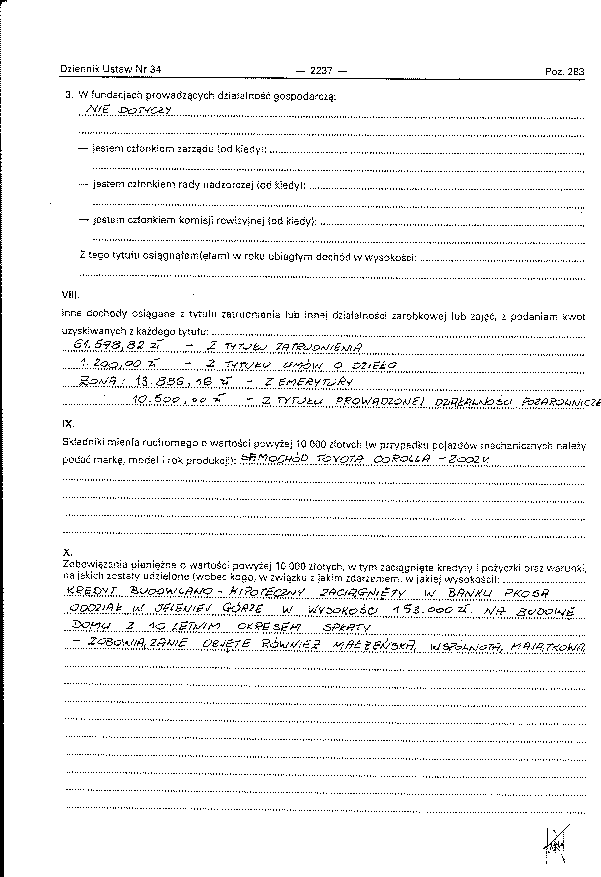 Dziennik Ustaw Nr 34 — 2237 — Poz. 283
3. W fundacjach prowadzących działalność gospodarczą:
NIE DOTYCZY
— jestem członkiem zarządu (od kiedy):
— jestem członkiem rady nadzorczej (od kiedy):
— jestem członkiem komisji rewizyjnej (od kiedy):
Z tego tytułu osiągnąłem(ęłam) w roku ubiegłym dochód w wysokości:
VIII.
Inne dochody osiągane z tytułu zatrudnienia lub innej działalności zarobkowej lub zajęć, z podaniem kwot
uzyskiwanych z każdego tytułu:
61.598,82 zł - Z TYTUŁU ZATRUDNIENIA
1.200,00 zł - Z TYTUŁU UMÓW O DZIEŁO
ŻONA: 13.856,16 zł - Z EMERYTURY
10.500,00 zł - Z TYTUŁU PROWADZONEJ DZIAŁALNOŚCI POZAROLNICZE
IX.
Składniki mienia ruchomego o wartości powyżej 10 000 złotych (w przypadku pojazdów mechanicznych należy
podać markę, model i rok produkcji): SAMOCHÓD TOYOTA COROLLA - 2002 r.
X.
Zobowiązania pieniężne o wartości powyżej 10 000 złotych, w tym zaciągnięte kredyty i pożyczki oraz warunki,
na jakich zostały udzielone (wobec kogo, w związku z jakim zdarzeniem, w jakiej wysokości):
KREDYT BUDOWLANO - HIPOTECZNY ZACIĄGNIĘTY W BANKU PKO SA
ODDZIAŁ W JELENIEJ GÓRZE W WYSOKOŚCI 153.000 zł. NA BUDOWĘ
DOMU Z 10 LETNIM OKRESEM SPŁATY
- ZOBOWIĄZANIE OBJĘTE RÓWNIEŻ MAŁŻEŃSKĄ WSPÓLNOTĄ MAJĄTKOWĄ